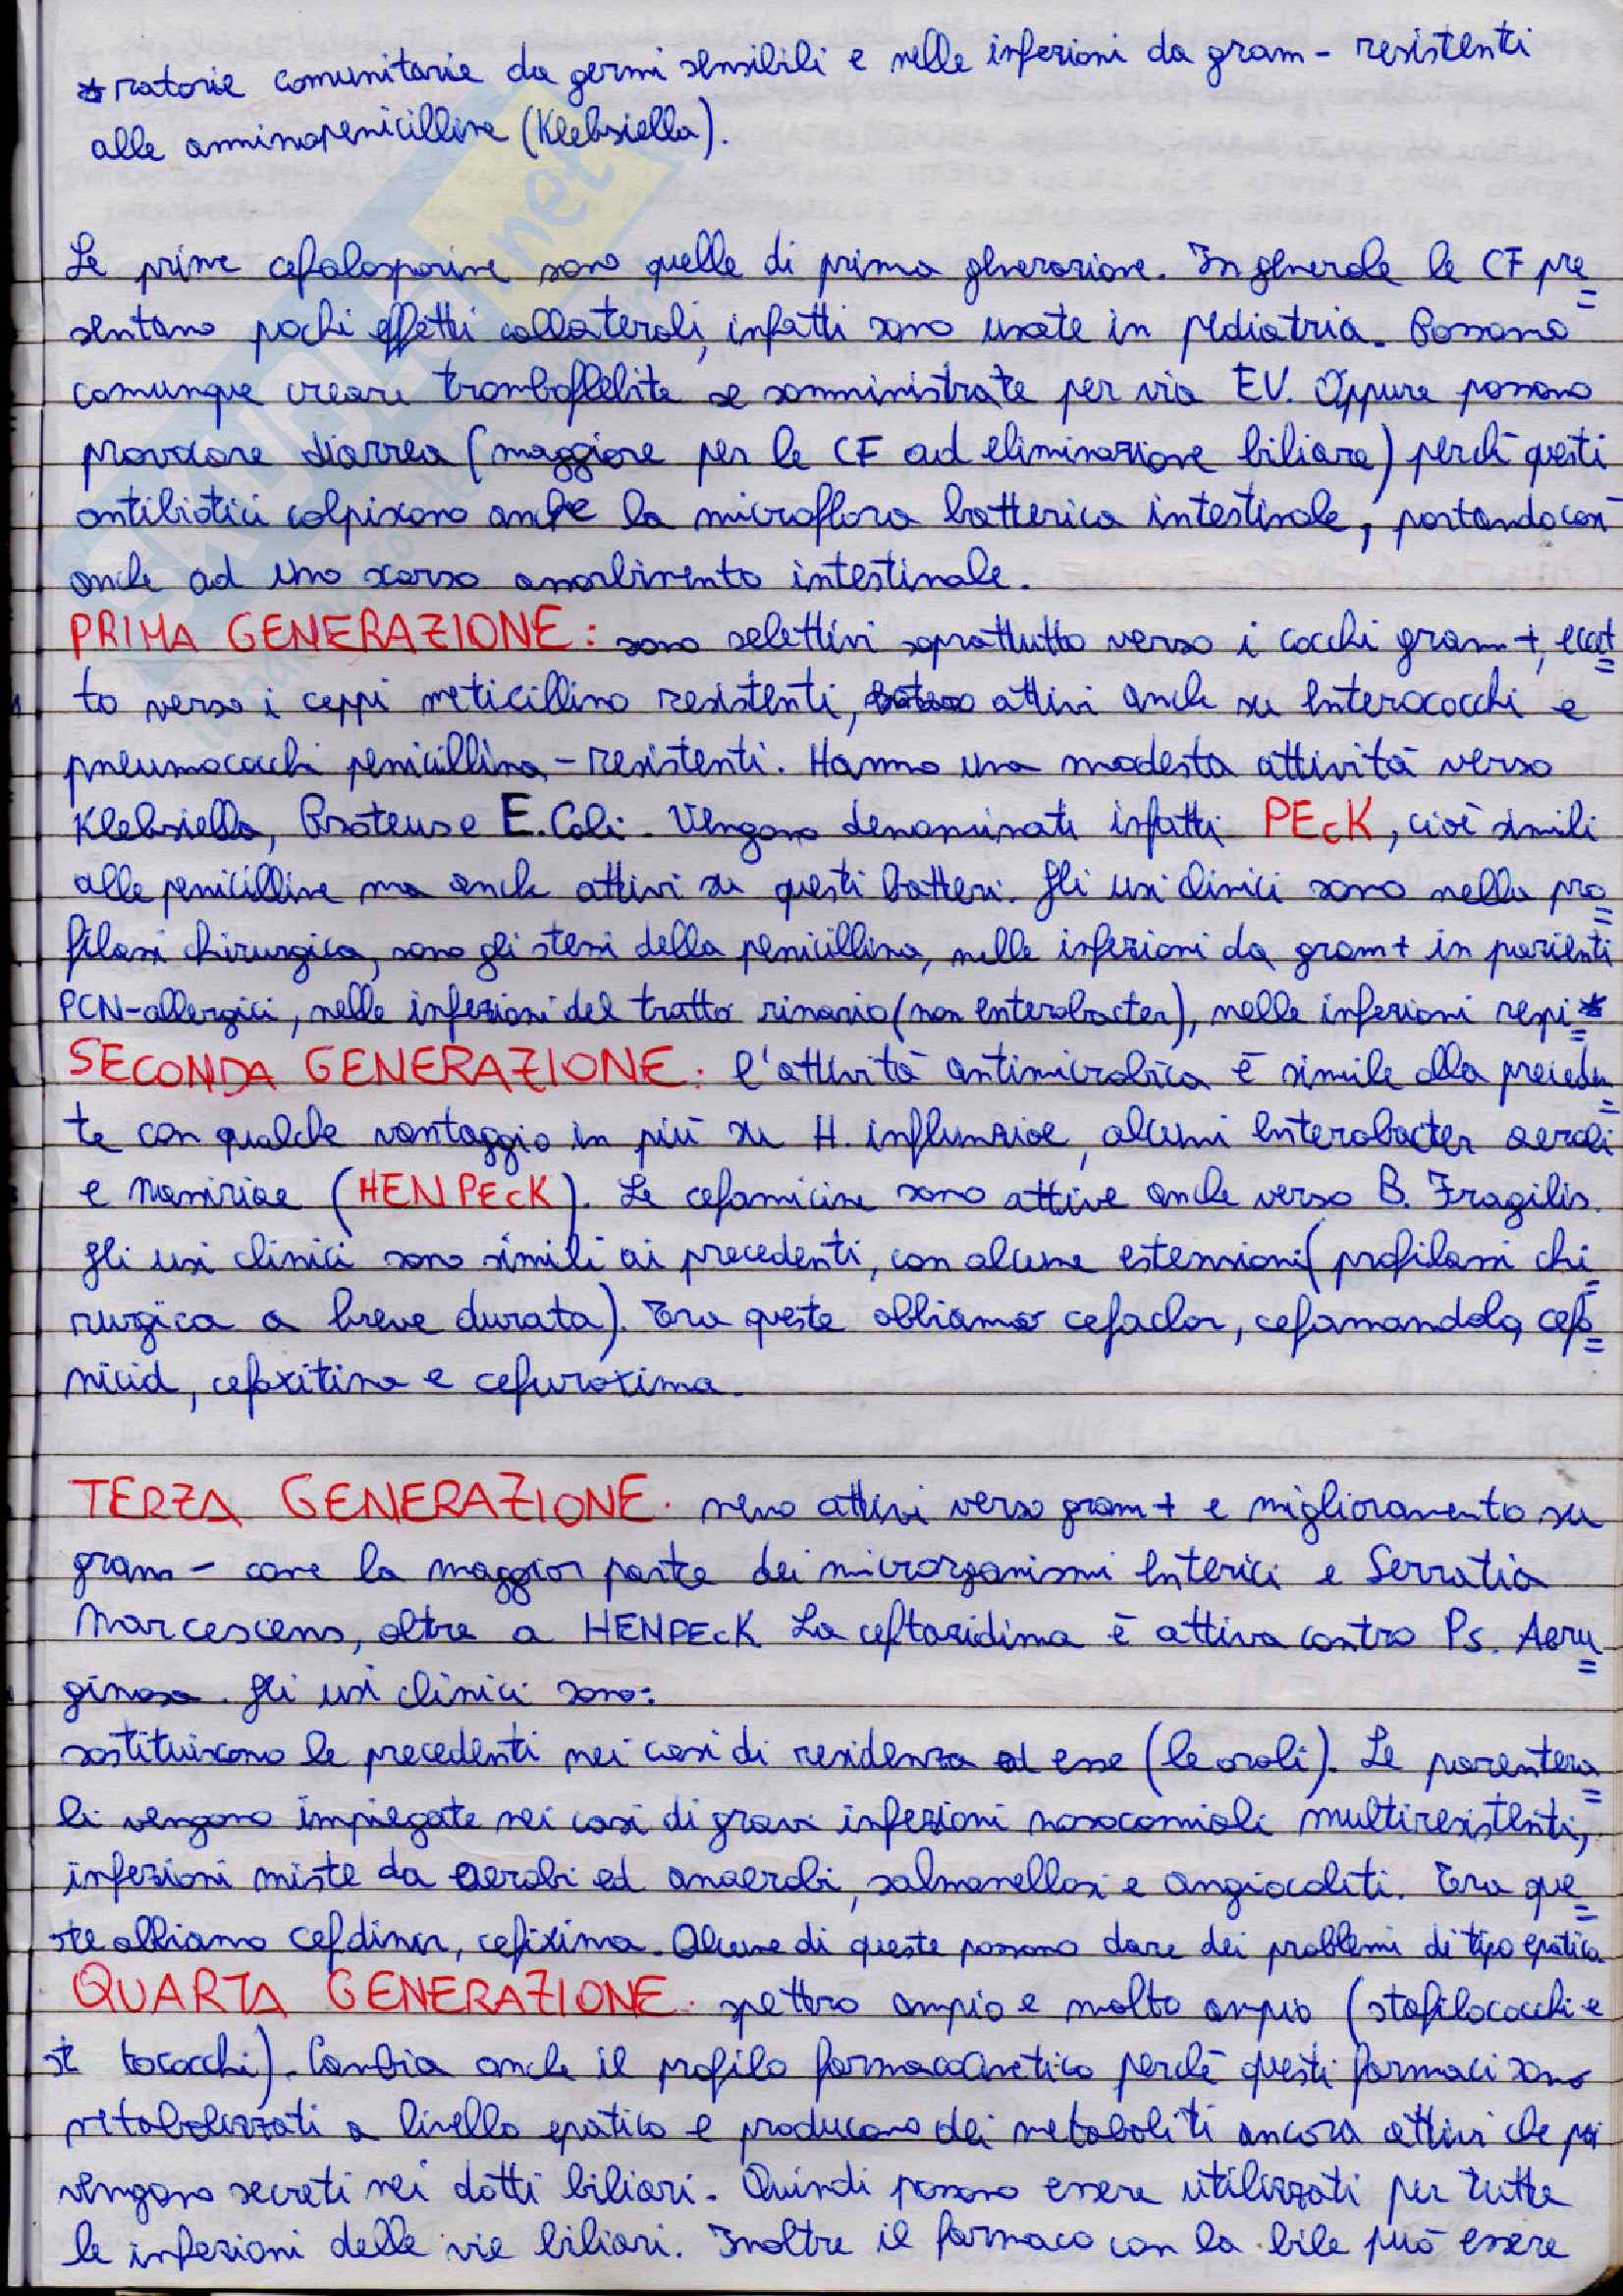 *ratorie comunitarie da germi sensibili e nelle infezioni da gram - resistenti
alle amminopenicilline (Klebsiella).
Le prime cefalosporine sono quelle di prima generazione. In generale le CF pre=
sentano pochi effetti collaterali, infatti sono usate in pediatria. Possono
comunque creare tromboflebite se somministrate per via EV. Oppure possono
provocare diarrea (maggiore per le CF ad eliminazione biliare) perchè questi
antibiotici colpiscono anche la microflora batterica intestinale, portando così
anche ad uno scarso assorbimento intestinale.
PRIMA GENERAZIONE: sono selettivi soprattutto verso i cocchi gram +, eccet=
to verso i ceppi meticillino resistenti, attivi anche su Enterococchi e
pneumococchi penicillina-resistenti. Hanno una modesta attività verso
Klebsiella, Proteus e E. Coli. Vengono denominati infatti PEcK, cioè simili
alle penicilline ma anche attivi su questi batteri. Gli usi clinici sono nella pro=
filassi chirurgica, sono gli stessi della penicillina, nelle infezioni da gram+ in pazienti
PCN-allergici, nelle infezioni del tratto rinario (non enterobacter), nelle infezioni respi=*
SECONDA GENERAZIONE: l'attività antimicrobica è simile alla preceden=
te con qualche vantaggio in più su H. influenzae, alcuni Enterobacter aerobi
e Neissiriae (HENPEcK). Le cefamicine sono attive anche verso B. Fragilis.
Gli usi clinici sono simili ai precedenti, con alcune estensioni (profilassi chi=
rurgica a breve durata). Tra queste abbiamo cefaclor, cefamandolo, cefo=
nicid, cefoxitina e cefuroxima.
TERZA GENERAZIONE: meno attivi verso gram+ e miglioramento su
gram - come la maggior parte dei microrganismi Enterici e Serratia
Marcescens, oltre a HENPEcK. La ceftazidima è attiva contro Ps. Aeru=
ginosa. Gli usi clinici sono:
sostituiscono le precedenti nei casi di residenza ad esse (le orali). Le parentera=
li vengono impiegate nei casi di gravi infezioni nosocomiali multiresistenti,
infezioni miste da aerobi ed anaerobi, salmonellosi e angiocoliti. Tra que=
ste abbiamo cefdinir, cefixima. Alcune di queste possono dare dei problemi di tipo epatico
QUARTA GENERAZIONE: spettro ampio e molto ampio (stafilococchi e
st tococchi). Cambia anche il profilo farmacocinetico perchè questi farmaci sono
metabolizzati a livello epatico e producono dei metaboliti ancora attivi che poi
vengono secreti nei dotti biliari. Quindi possono essere utilizzati per tutte
le infezioni delle vie biliari. Inoltre il farmaco con la bile può essere